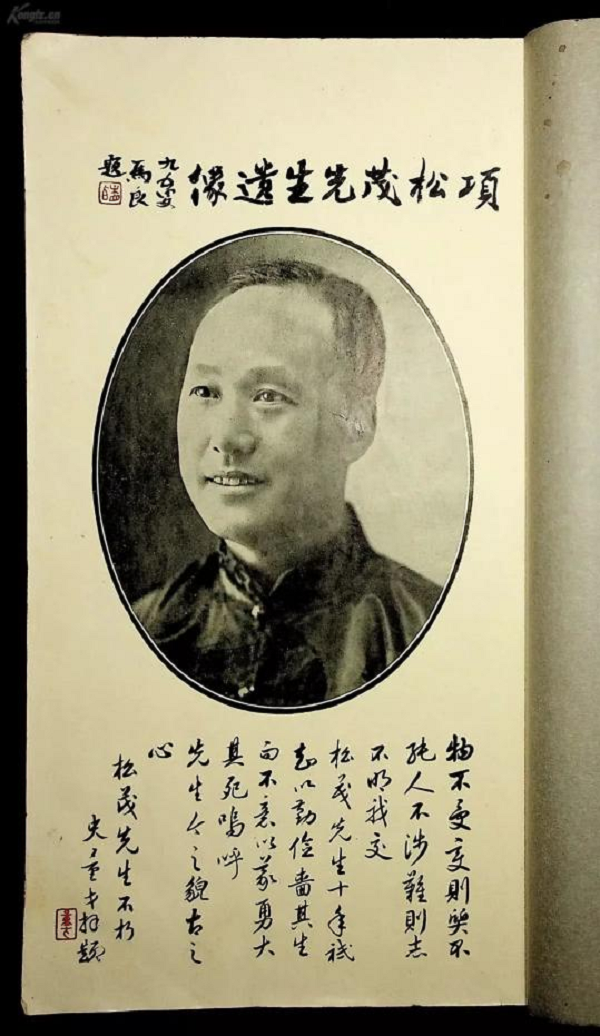 Kongfz.cn
項松茂先生遺像
九五叟
馬良
題
物不受变則器不
純人不涉難則志
不明我交
松茂先生十年祗
知以勤儉嗇其生
而不意以義勇大
其死嗚呼
先生今之貌古之
心
松茂先生不朽
史量才拜題